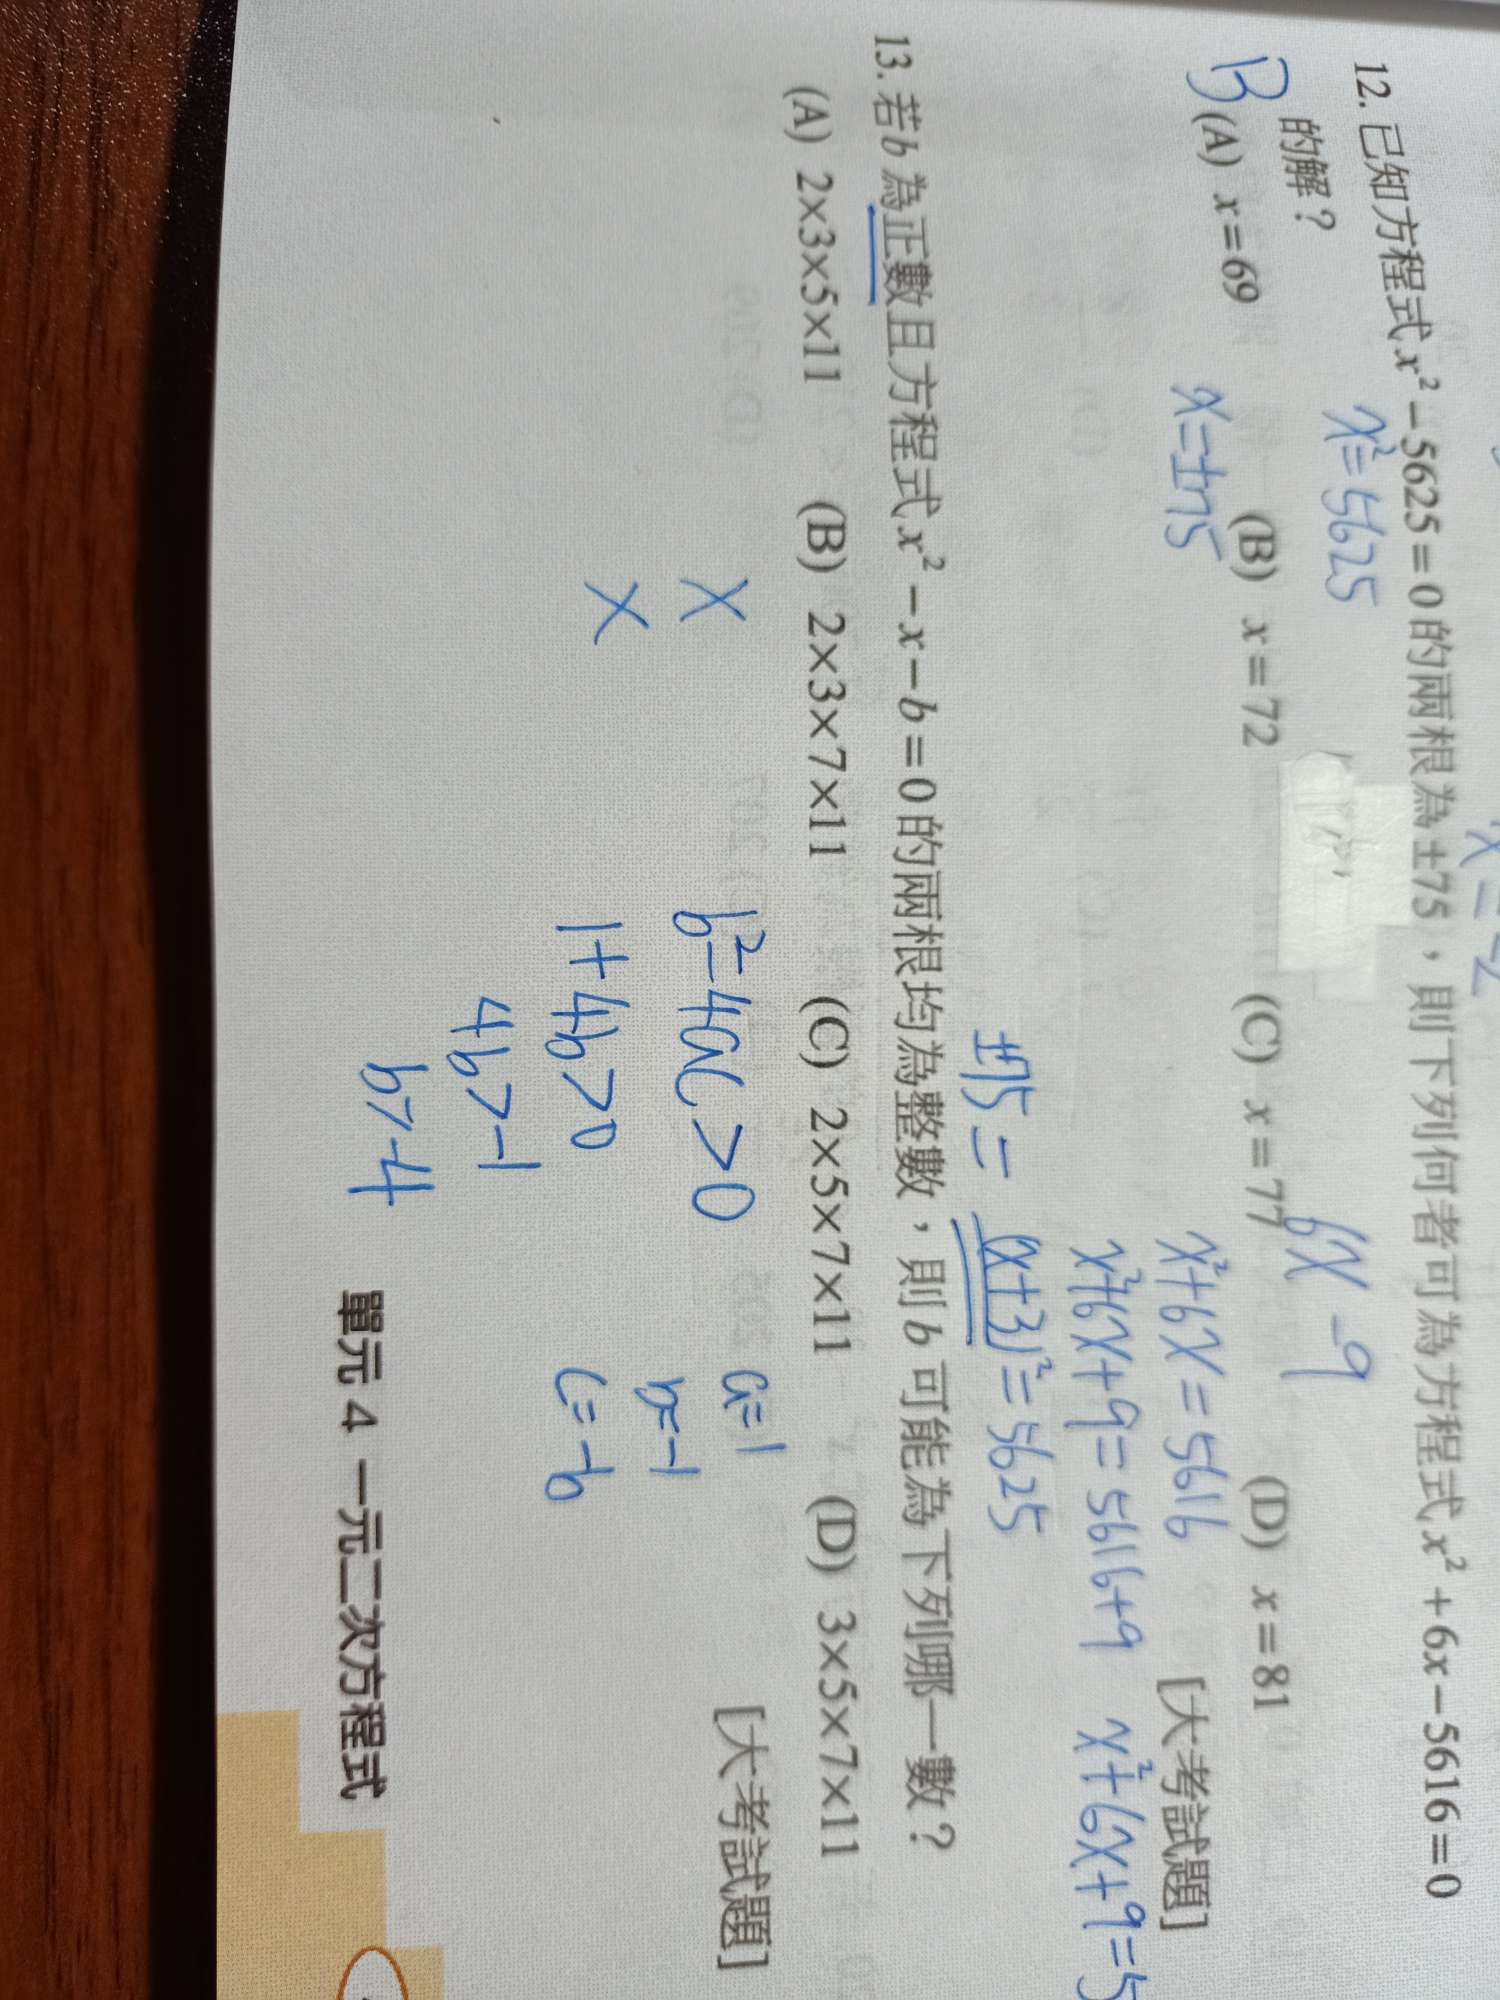 12. 已知方程式 x²－5625＝0 的兩根為 ±75，則下列何者可為方程式 x²＋6x－5616＝0
的解？
x²=5625
6x -9
B
(A) x＝69 (B) x＝72 (C) x＝77 (D) x＝81
x=±75
x²+6x=5616
[大考試題]
x²+6x+9=5616+9
x²+6x+9=5
±75=
(x+3)²=5625
13. 若 b 為正數且方程式 x²－x－b＝0 的兩根均為整數，則 b 可能為下列哪一數？
(A) 2×3×5×11 (B) 2×3×7×11 (C) 2×5×7×11 (D) 3×5×7×11
[大考試題]
x
x
b²-4ac>0
1+4b>0
4b>-1
b>-4
a=1
b=-1
c=-b
單元 4 一元二次方程式